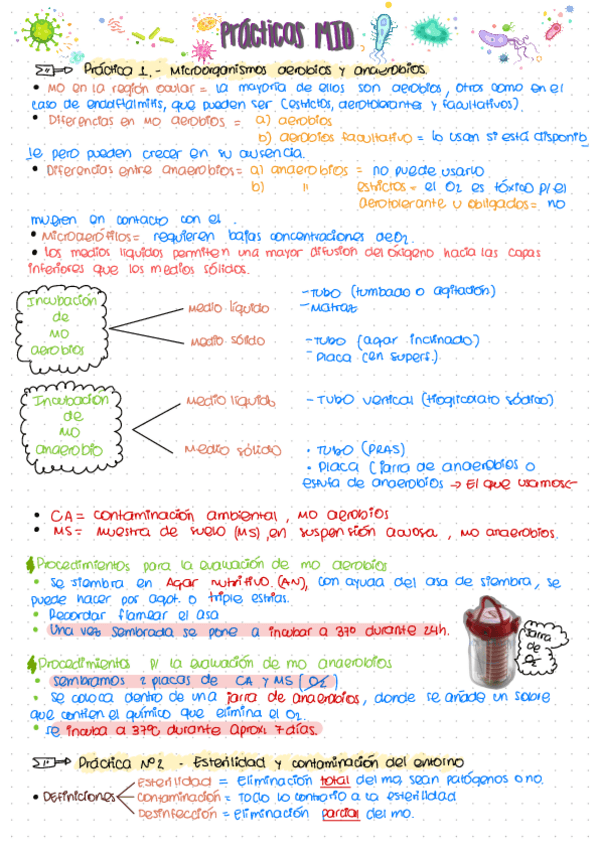 Prácticas MID
Práctica 1.- Microorganismos aerobios y anaerobios.
• MO en la región ocular = la mayoría de ellos son aerobios, otros como en el
caso de endoftalmitis, que pueden ser (estrictos, aerotolerantes y facultativos).
• Diferencias en MO aerobios = a) aerobios
b) aerobios facultativo = lo usan si está disponib
le pero pueden crecer en su ausencia.
• Diferencias entre anaerobios = a) anaerobios = no puede usarlo
b) " estrictos = el O2 es tóxico p/ el
aerotolerante u obligados = no
mueren en contacto con el.
• Microaerófilos = requieren bajas concentraciones de O2.
• Los medios líquidos permiten una mayor difusión del oxígeno hacia las capas
inferiores que los medios sólidos.
Incubación
de
MO
aerobios
Medio líquido
- Tubo (tumbado o agitación)
- Matraz
Medio sólido
- Tubo (agar inclinado)
- Placa (en superf.)
Incubación
de
MO
anaerobio
Medio líquido
- Tubo vertical (tioglicolato sódico)
Medio sólido
• Tubo (PRAS)
• Placa (jarra de anaerobios o
estufa de anaerobios → El que usamos
• CA = contaminación ambiental, MO aerobios
• MS = muestra de suelo (MS), en suspensión acuosa, MO anaerobios.
Procedimientos para la evaluación de mo aerobios
• Se siembra en Agar nutritivo (AN), con ayuda del asa de siembra, se
puede hacer por agot. o triple estrias.
• Recordar flamear el asa
• Una vez sembrada se pone a incubar a 37º durante 24h.
Procedimientos p/ la evaluación de mo anaerobios
• Sembramos 2 placas de CA y MS (O2)
• Se coloca dentro de una jarra de anaerobios, donde se añade un sobre
que contien el químico que elimina el O2.
• Se incuba a 37ºC durante aprox. 7 días.
jarra
de
O2
Práctica Nº2 - Esterilidad y contaminación del entorno
• Definiciones
Esterilidad = Eliminación total del mo, sean patógenos o no.
Contaminación = Todo lo contrario a la esterilidad
Desinfección = Eliminación parcial del mo.